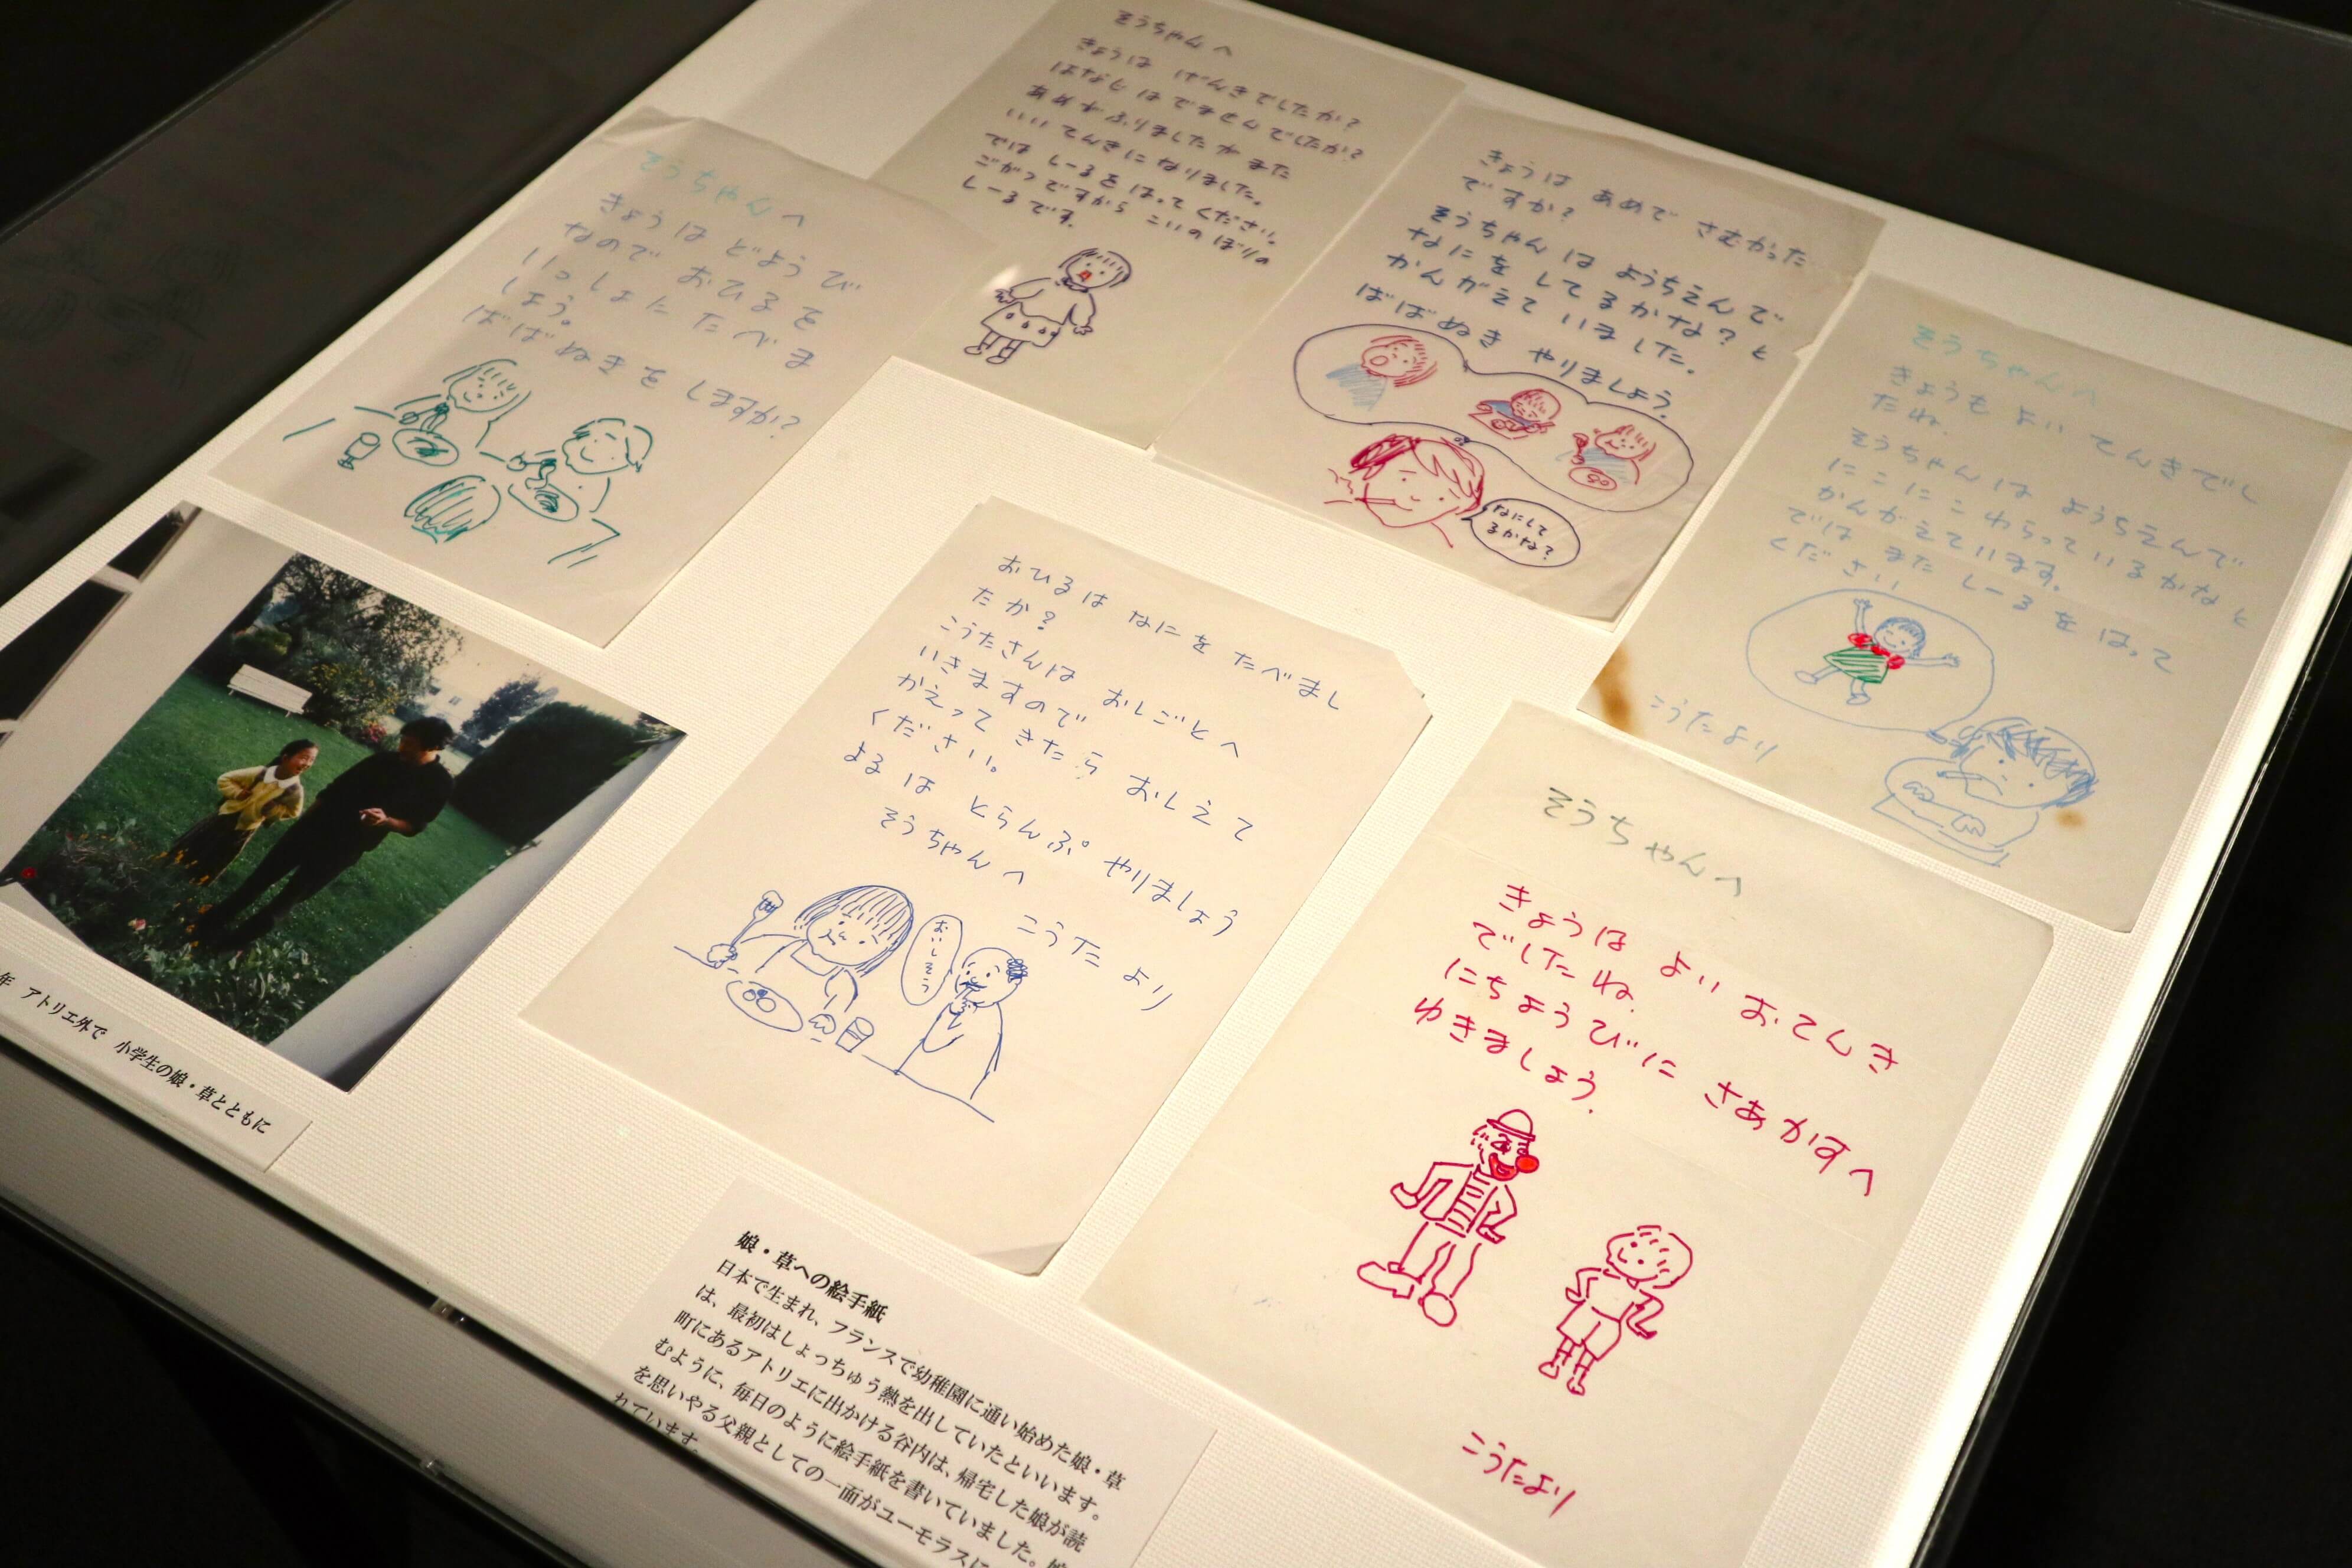 そうちゃんへ
きょうは げんきでしたか?
はなしはできませんでしたか?
あめがふりましたが また
いい てんきに なりました。
では しーるを はって ください。
ごがつですから こいのぼりの
しーるです。
そうちゃんへ
きょうは どようび
なので おひるを
いっしょに たべま
しょう。
ばばぬきを しますか?
きょうは あめで さむかった
ですか?
そうちゃんは ようちえんで
なにを してるかな?と
かんがえて いました。
ばばぬき やりましょう。
なにして
るかな?
そうちゃんへ
きょうも よい てんきでし
たね.
そうちゃんは ようちえんで
にこにこ わらっているかなと
かんがえています。
では また しーるを はって
ください
こうたより
おひるは なにを たべまし
たか?
こうたさんは おしごとへ
いきますので
かえって きたら おしえて
ください。
よるは とらんぷ やりましょう
そうちゃんへ
こうたより
おいしそう
そうちゃんへ
きょうは よい おてんき
でしたね.
にちようびに さあかすへ
ゆきましょう.
こうたより
年 アトリエ外で 小学生の娘・草とともに
娘・草への絵手紙
日本で生まれ、フランスで幼稚園に通い始めた娘・草
は、最初はしょっちゅう熱を出していたといいます。
町にあるアトリエに出かける谷内は、帰宅した娘が読
むように、毎日のように絵手紙を書いていました。
を思いやる父親としての一面がユーモラスに
れています。